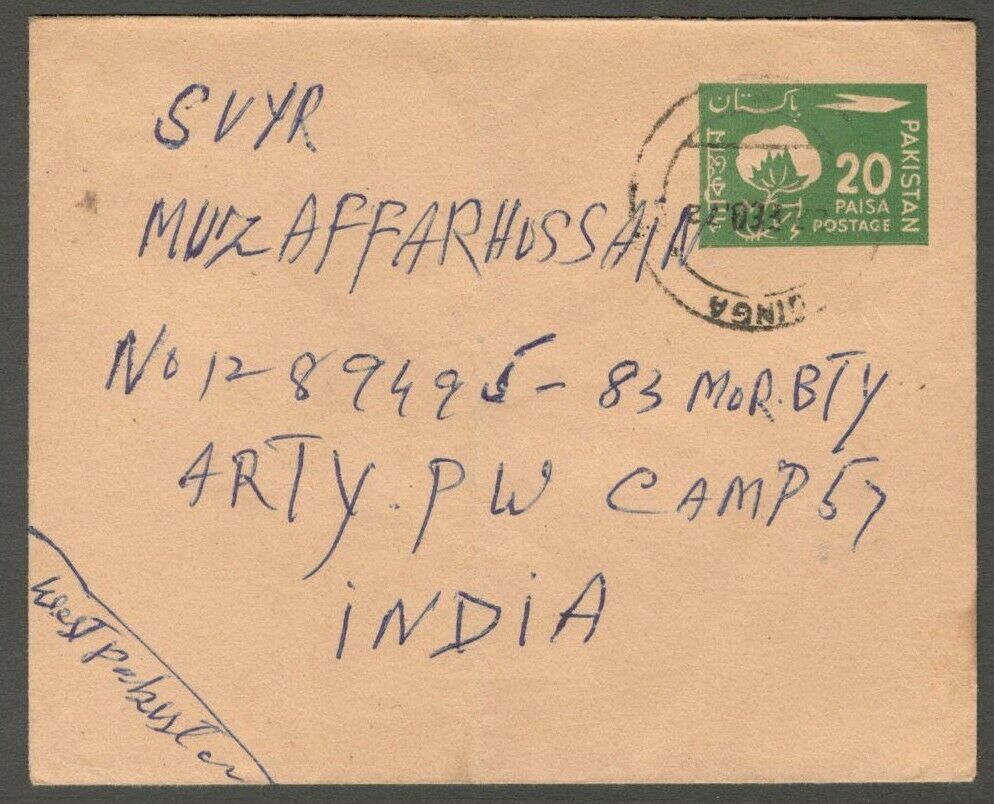 SVYR
MUZAFFARHUSSAIN
No 1289495 - 83 MOR.BTY
ARTY. PW CAMP 57
INDIA
West Pakistan
پاکستان
পাকিস্তান
PAKISTAN
20
PAISA
POSTAGE
INGA